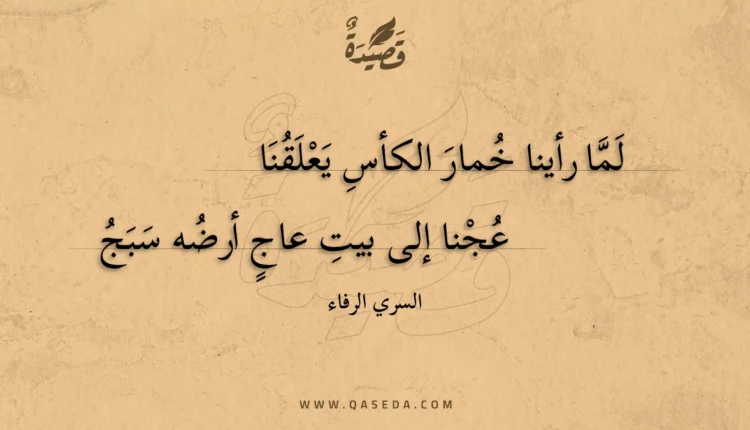 قَصِيْدَةٌ
لَمَّا رأينا خُمارَ الكأسِ يَعْلَقُنَا
عُجْنا إلى بيتِ عاجٍ أرضُه سَبَجُ
السري الرفاء
WWW.QASEDA.COM